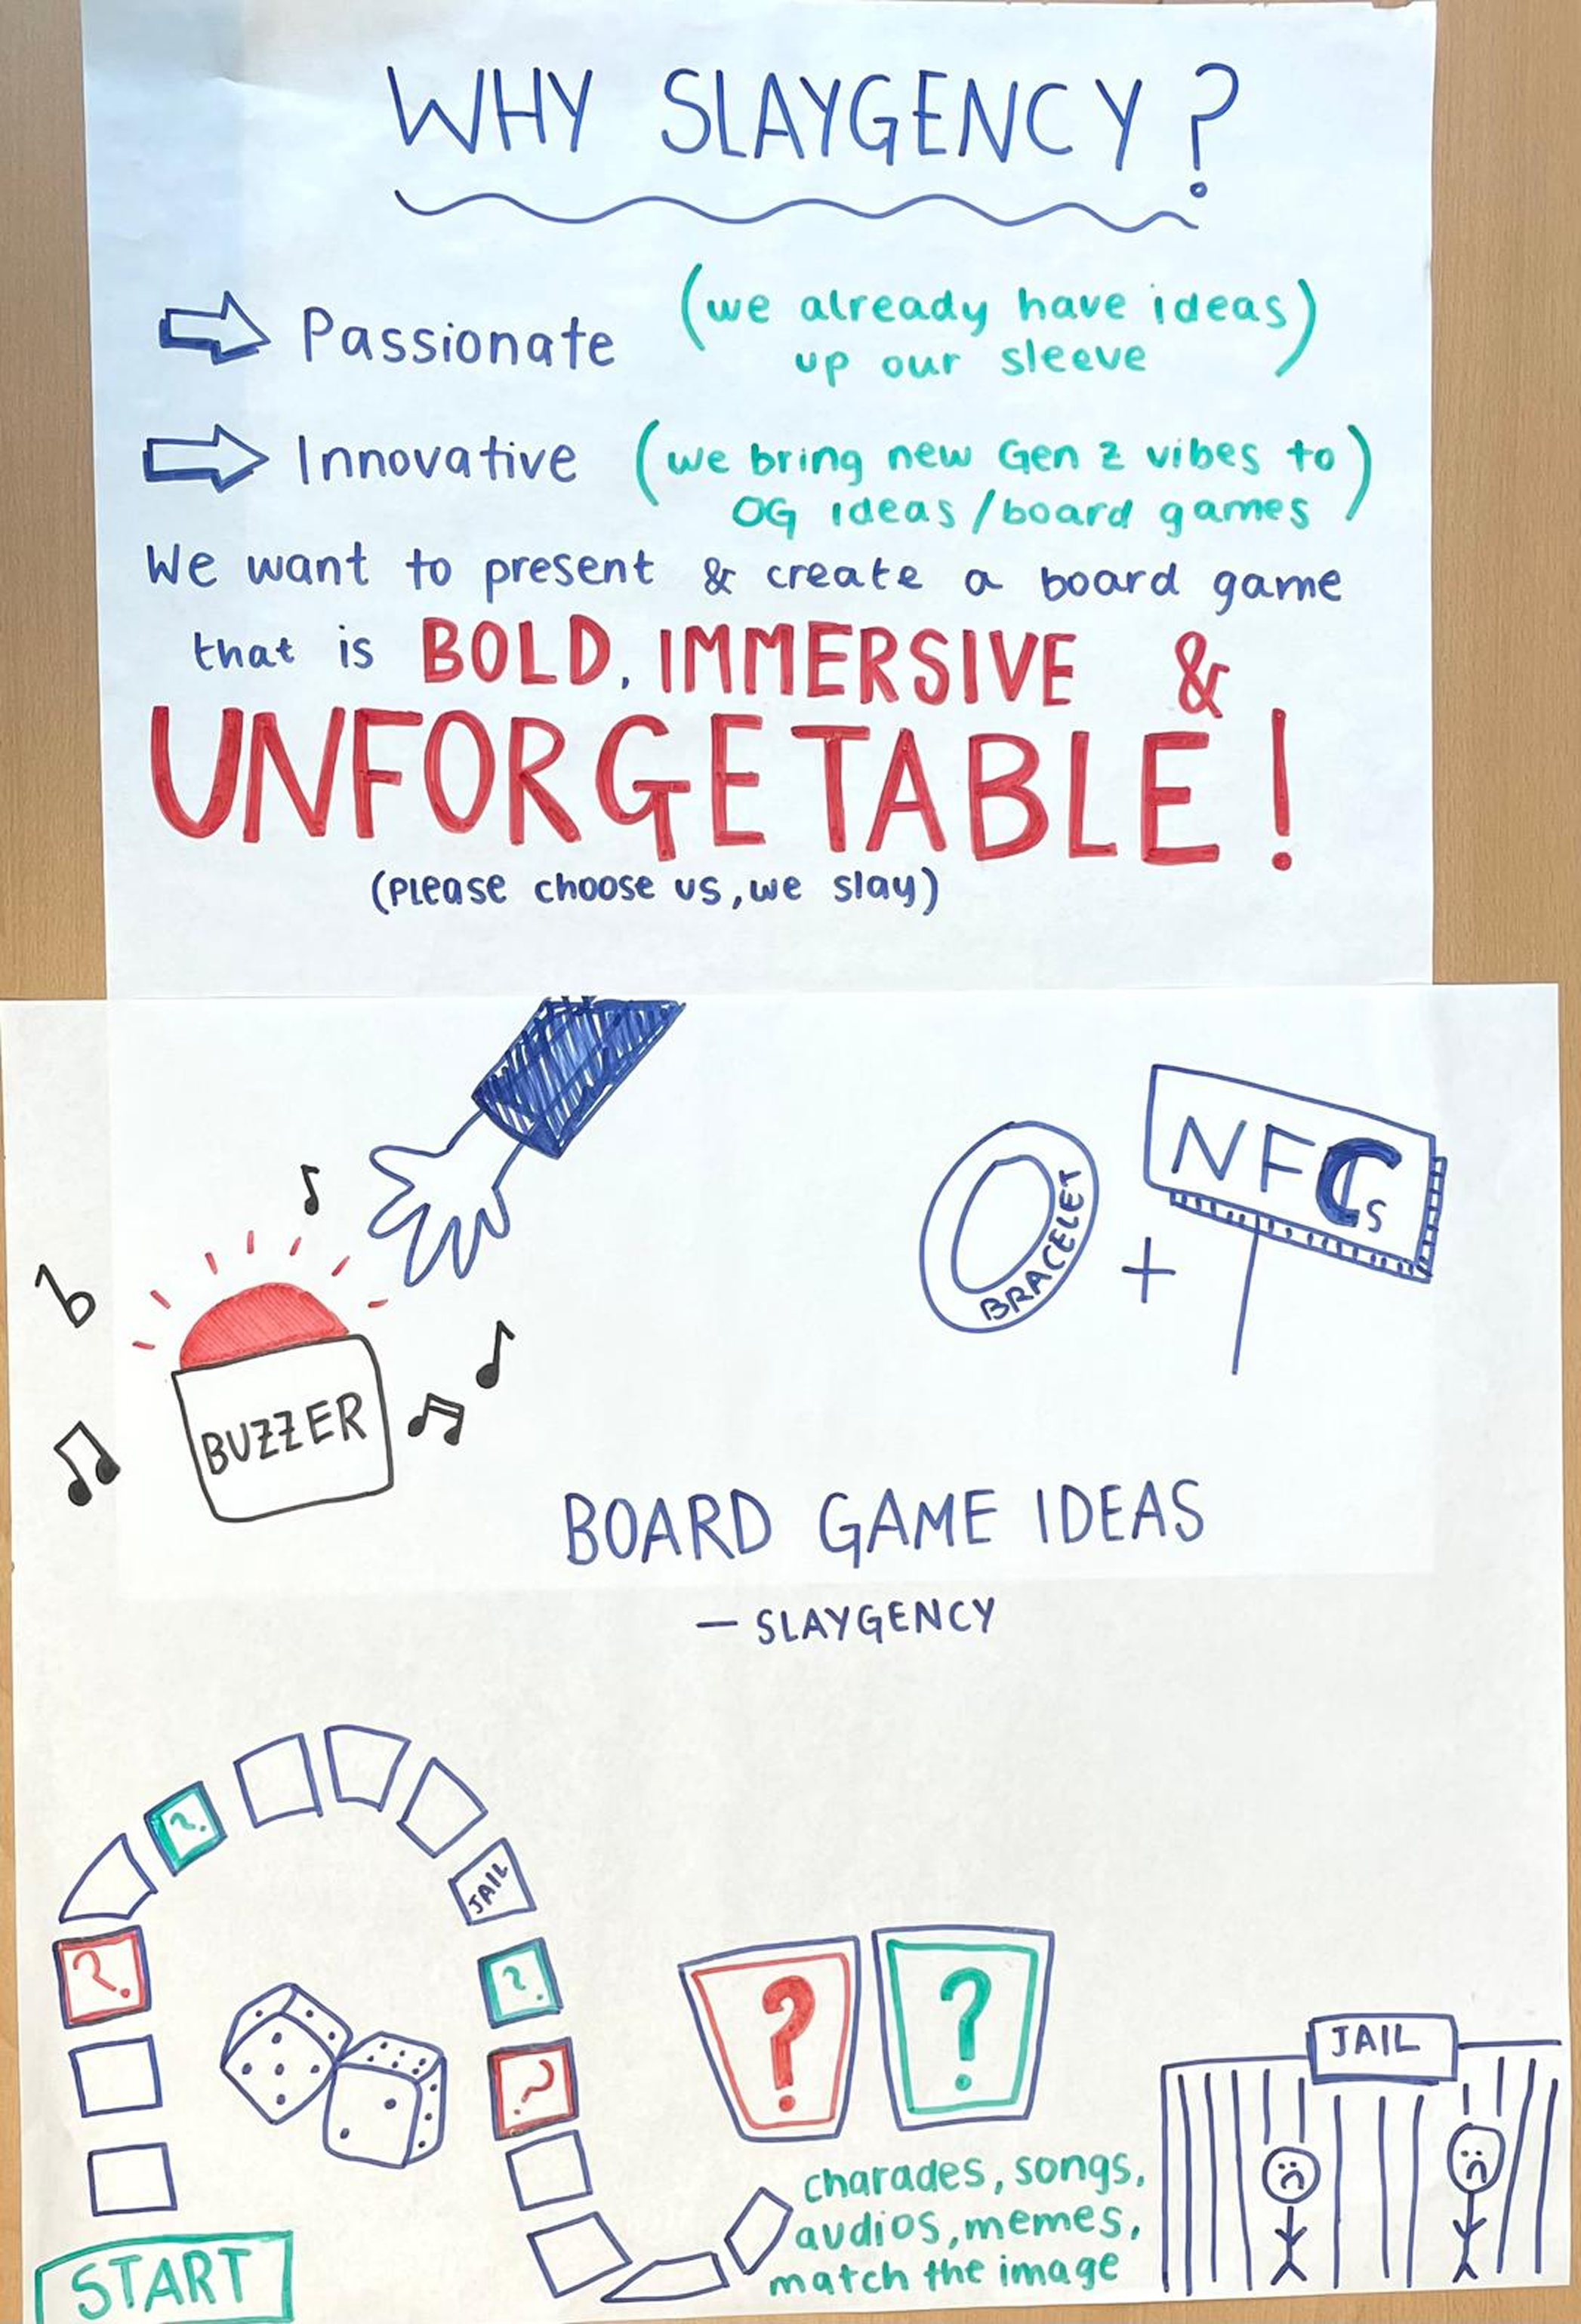 WHY SLAYGENCY?
Passionate (we already have ideas
up our sleeve)
Innovative (we bring new Gen Z vibes to
OG ideas/board games)
We want to present & create a board game
that is BOLD, IMMERSIVE &
UNFORGETABLE!
(Please choose us, we slay)
BRACELET
+
NFCs
BUZZER
BOARD GAME IDEAS
— SLAYGENCY
?
JAIL
?
?
?
? ?
JAIL
charades, songs,
audios, memes,
match the image
START